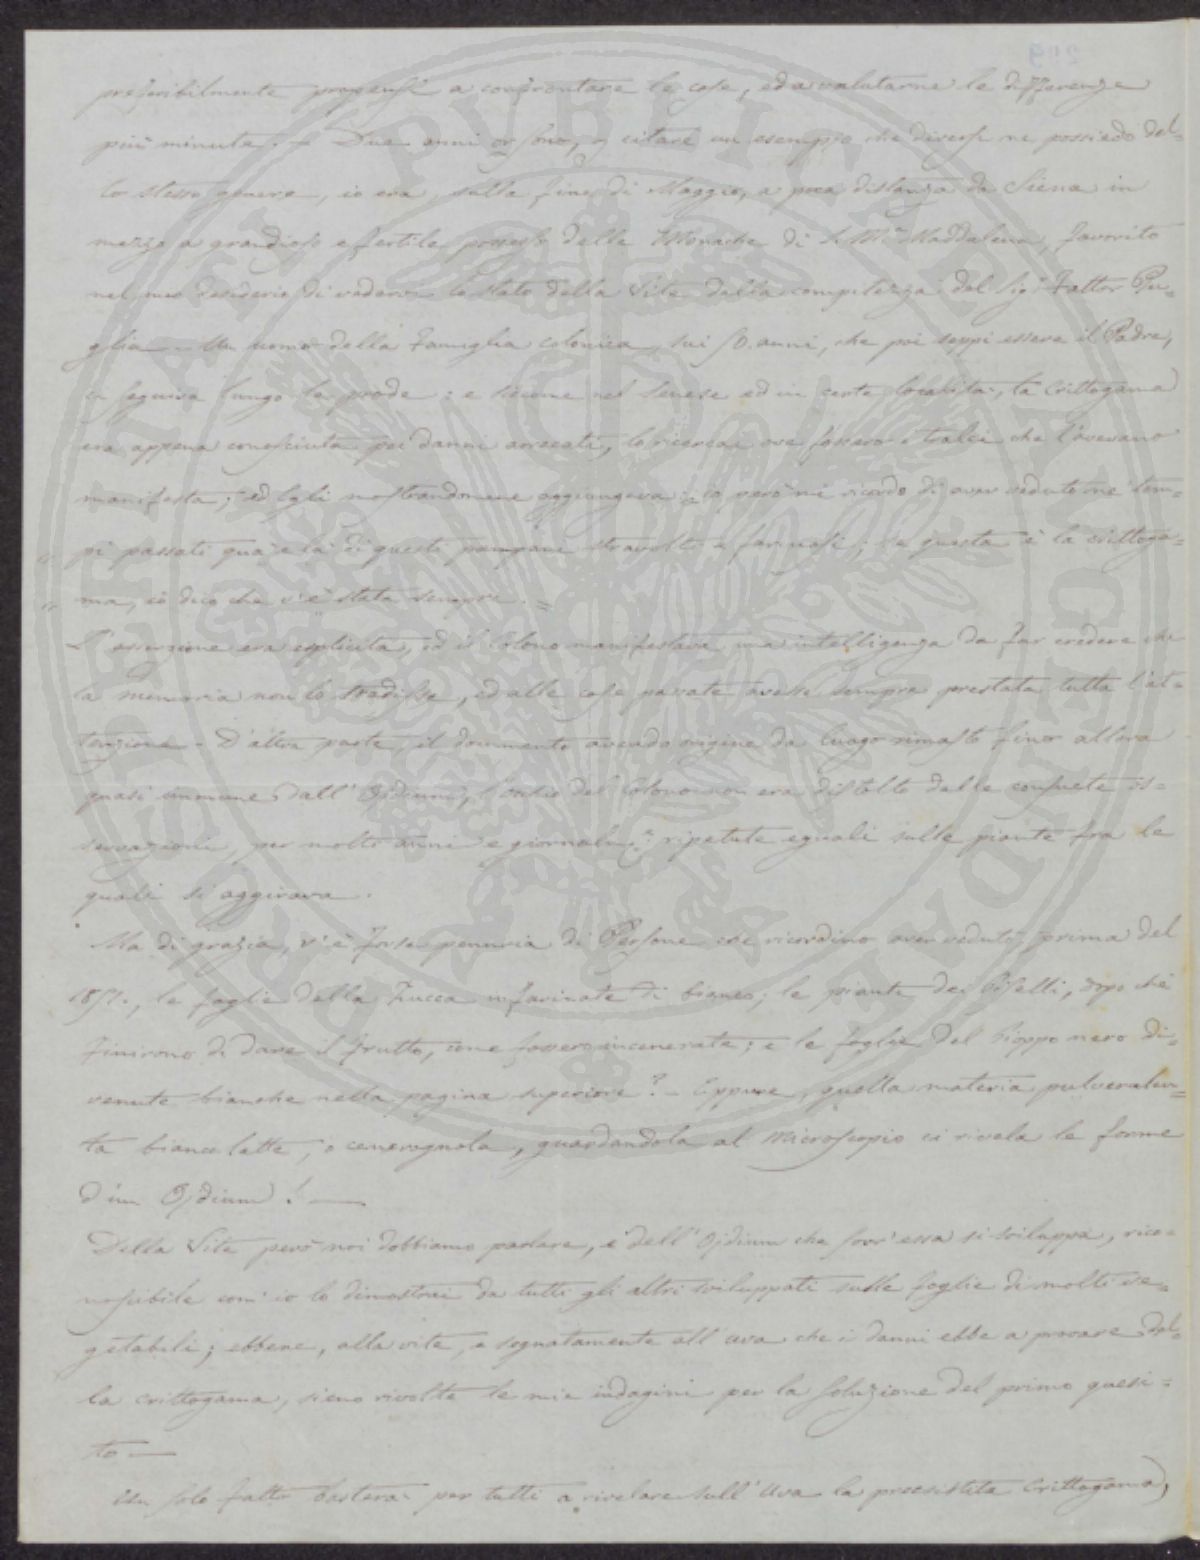 preferibilmente propensi a confrontare le cose, ed a valutarne le differenze
più minute. – Due anni or sono, p citare un esempio che diversi ne possiedo del=
lo stesso genere, io era, sulla fine di Maggio, a poca distanza da Siena in
mezzo a grandioso e fertile possesso delle Monache di S. Mª Maddalena, favorito
nel mio desiderio di vedere lo stato della Vite dalla compitezza del Sigr Fattor Pu=
glia – Un uomo della Famiglia colonica, sui 50. anni, che poi seppi essere il Padre,
ci seguiva lungo le prode: e siccome nel Senese ed in certe località, la Crittogama
era appena conosciuta pei danni arrecati, lo ricercai ove fossero i tralci che l'avevano
manifesta; ed Egli mostrandomene aggiungeva: = io però mi ricordo di aver veduto ne' tem=
" pi passati qua e là di questi pampani stravolti e farinosi; se questa è la crittoga=
" ma, io dico che v'è stata sempre. =
L'asserzione era esplicita, ed il Colono manifestava una intelligenza da far credere che
la memoria non lo tradisse, ed alle cose narrate avesse sempre prestata tutta l'at=
tenzione – D'altra parte, il documento avendo origine da luogo rimasto fino allora
quasi immune dall'Ojdium, l'occhio del Colono non era distolto dalle consuete os=
servazioni, per molti anni e giornalme ripetute eguali sulle piante fra le
quali si aggirava.
Ma di grazia, v'è forse penuria di Persone che ricordino aver veduti prima del
1851., le foglie della Zucca infarinate di bianco; le piante dei Piselli, dopo che
finirono di dare il frutto, come fossero incenerate; e le foglie del Pioppo nero di=
venute bianche nella pagina superiore? – Eppure, quella materia pulverulen=
ta bianco latte, o cenerognola, guardandola al Microscopio ci rivela le forme
d'un Ojdium! —
Della Vite però noi dobbiamo parlare, e dell'Ojdium che sovr'essa si sviluppa, rico=
noscibile com' io lo dimostrai da tutti gli altri sviluppati sulle foglie di molti ve=
getabili; ebbene, alla vite, e segnatamente all'uva che i danni ebbe a provare del=
la crittogama, sieno rivolte le mie indagini per la soluzione del primo quesi=
to —
Un solo fatto basterà per tutti a rivelare sull'Uva la preesistita Crittogama,